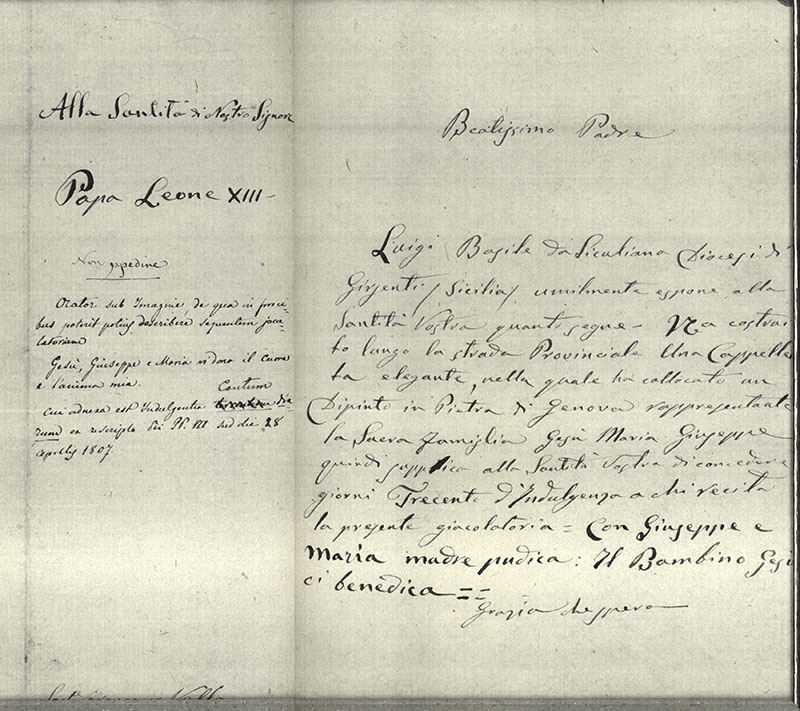 Alla Santità di Nostro Signore
Papa Leone XIII-
Non expedire
Orator sub Imagine de qua in
bus poterit potius describere sequentem jacu-
latoriam
Gesù, Giuseppe e Maria vi dono il cuore
e l'anima mia.
Centum
cui adnexa est Indulgentia die-
rum ex rescripto Pii PP. VII sub die 28
aprilis 1807
Beatissimo Padre
Luigi Basile da Siculiana Diocesi di
Girgenti /Sicilia/ umilmente espone alla
Santità Vostra quanto segue- Ha costrui
to lungo la strada Provinciale Una Cappellet
ta elegante, nella quale ha collocato un
Dipinto in Pietra di Genova rappresentante
la Sacra famiglia Gesù Maria Giuseppe
quindi supplica alla Santità Vostra di concedere
giorni Trecento d'Indulgenza a chi recita
la presente giacolatoria = Con Giuseppe e
Maria madre pudica: Il Bambino Gesù
ci benedica ==
Grazia che spera